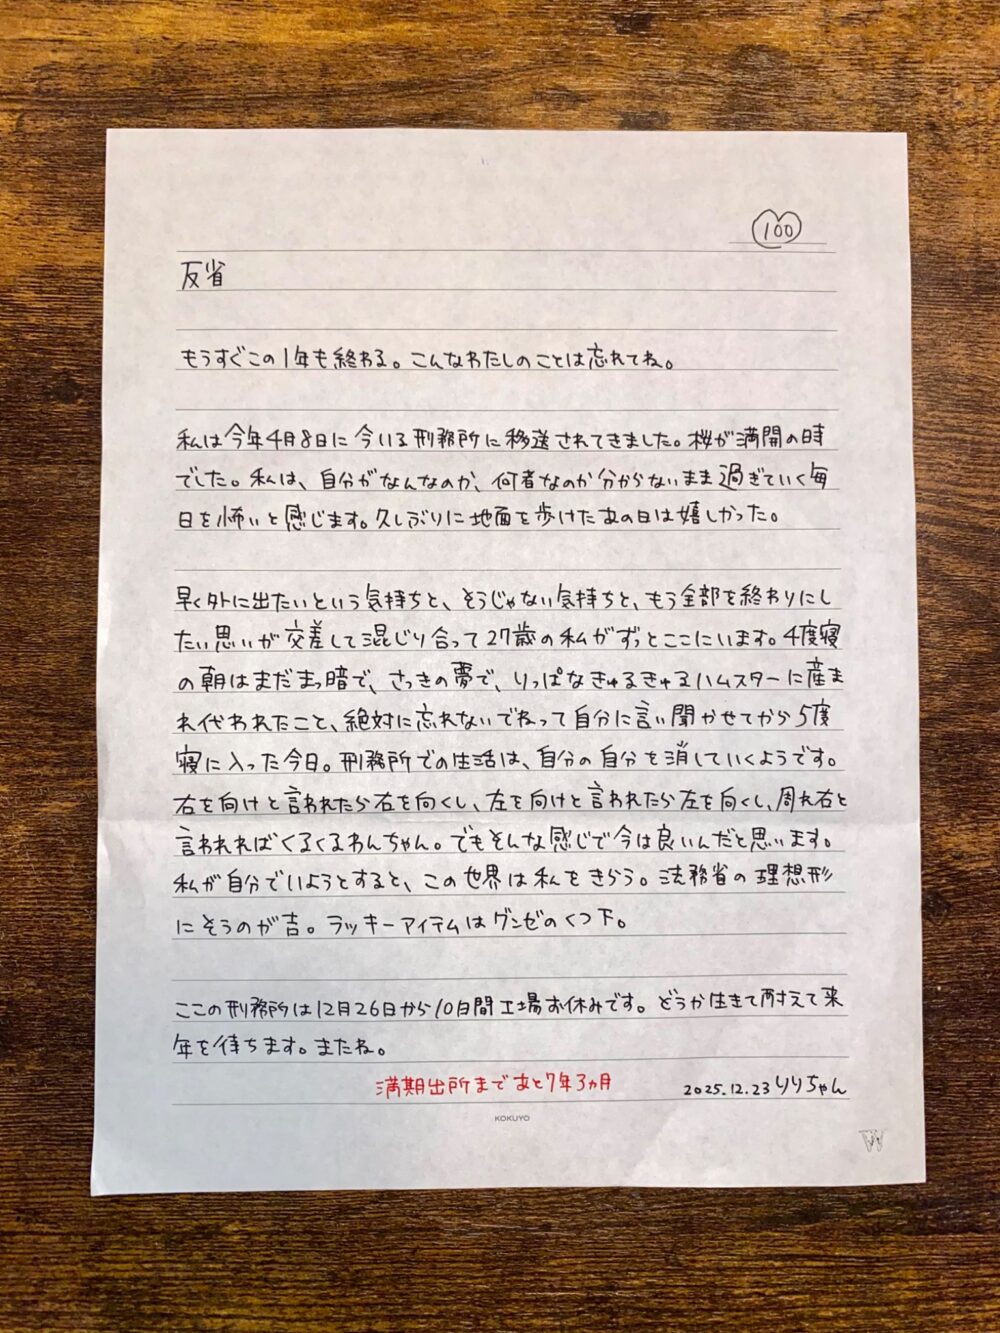 100
反省
もうすぐこの1年も終わる。こんなわたしのことは忘れてね。
私は今年4月8日に今いる刑務所に移送されてきました。桜が満開の時
でした。私は、自分がなんなのか、何者なのか分からないまま過ぎていく毎
日を怖いと感じます。久しぶりに地面を歩けたあの日は嬉しかった。
早く外に出たいという気持ちと、そうじゃない気持ちと、もう全部を終わりにし
たい思いが交差して混じり合って27歳の私がずっとここにいます。4度寝
の朝はまだまっ暗で、さっきの夢で、りっぱなきゅるきゅるハムスターに産ま
れ代われたこと、絶対に忘れないでねって自分に言い聞かせてから5度
寝に入った今日。刑務所での生活は、自分の自分を消していくようです。
右を向けと言われたら右を向くし、左を向けと言われたら左を向くし、周れ右と
言われればくるくるわんちゃん。でもそんな感じで今は良いんだと思います。
私が自分でいようとすると、この世界は私をきらう。法務省の理想形
にそうのが吉。ラッキーアイテムはグンゼのくつ下。
ここの刑務所は12月26日から10日間工場お休みです。どうか生きて耐えて来
年を待ちます。またね。
満期出所まであと7年3ヵ月 2025.12.23 りりちゃん
KOKUYO
W